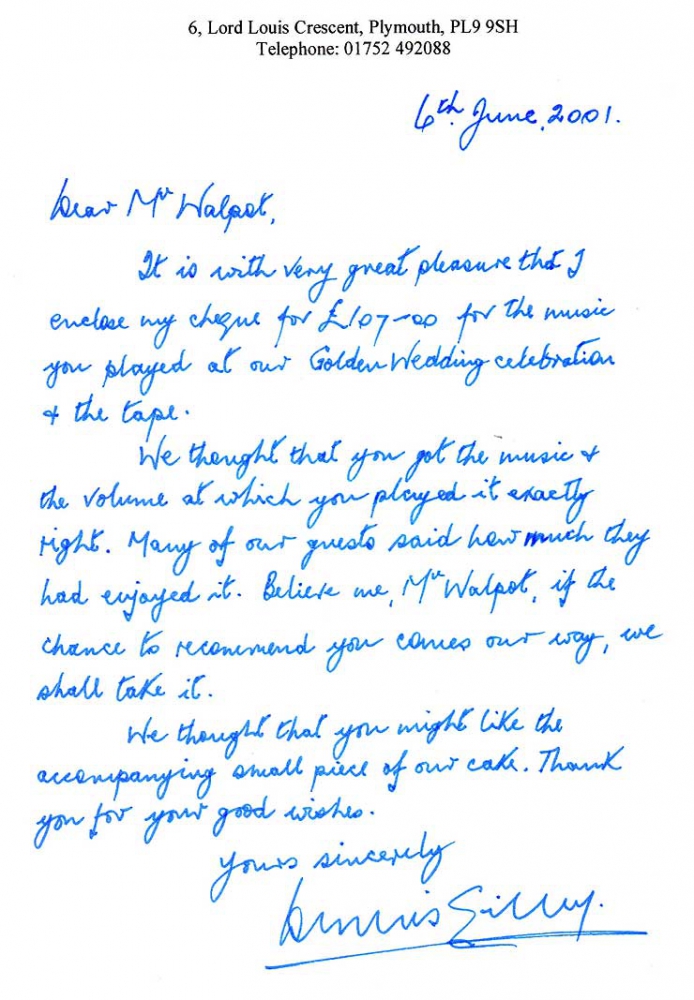 6, Lord Louis Crescent, Plymouth, PL9 9SH
Telephone: 01752 492088
6th June, 2001.
Dear Mr Walpot,
It is with very great pleasure that I
enclose my cheque for £107-00 for the music
you played at our Golden Wedding celebration
& the tape.
We thought that you got the music &
the volume at which you played it exactly
right. Many of our guests said how much they
had enjoyed it. Believe me, Mr Walpot, if the
chance to recommend you comes our way, we
shall take it.
We thought that you might like the
accompanying small piece of our cake. Thank
you for your good wishes.
Yours sincerely
Dennis